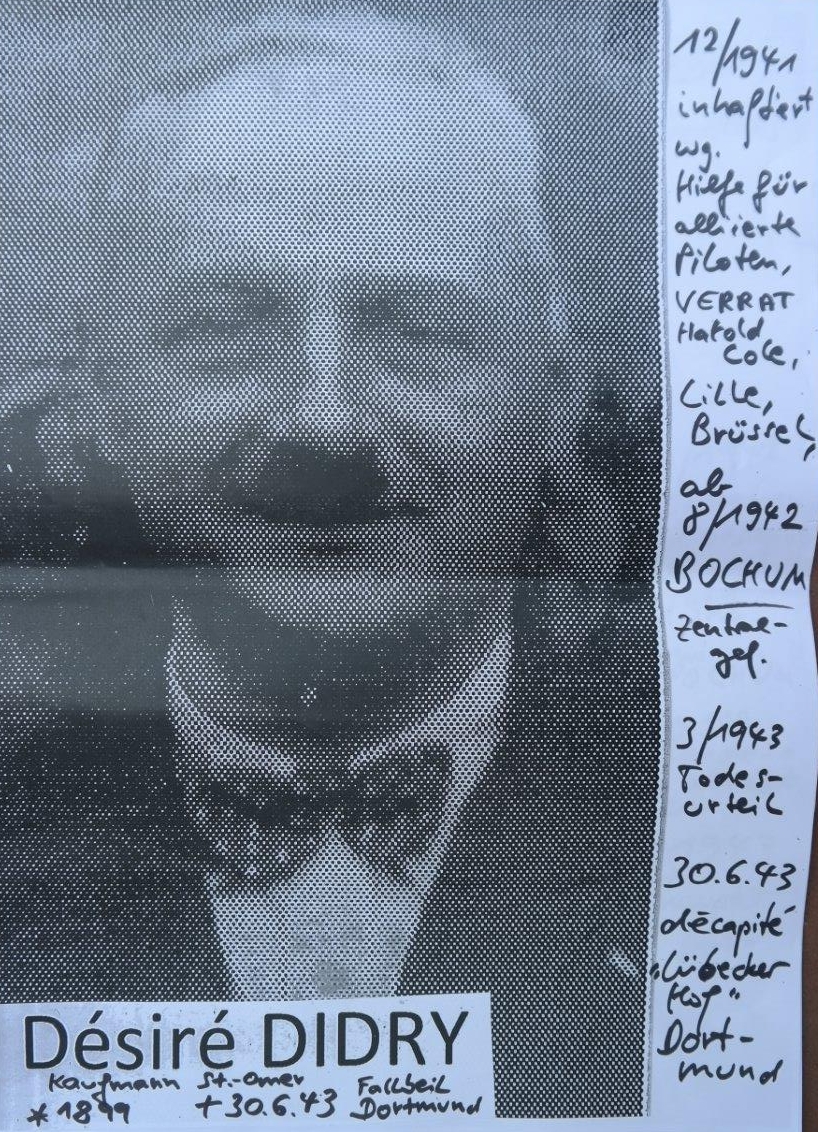 12/1941
inhaftiert
wg.
Hilfe für
alliierte
Piloten,
VERRAT
Harold
Cole,
Lille,
Brüssel,
ab
8/1942
BOCHUM
Zentral-
gef.
3/1943
Todes-
urteil
30.6.43
décapité
"Lübecker
Hof"
Dort-
mund
Désiré DIDRY
Kaufmann St.-Omer Fallbeil
* 1899 + 30.6.43 Dortmund